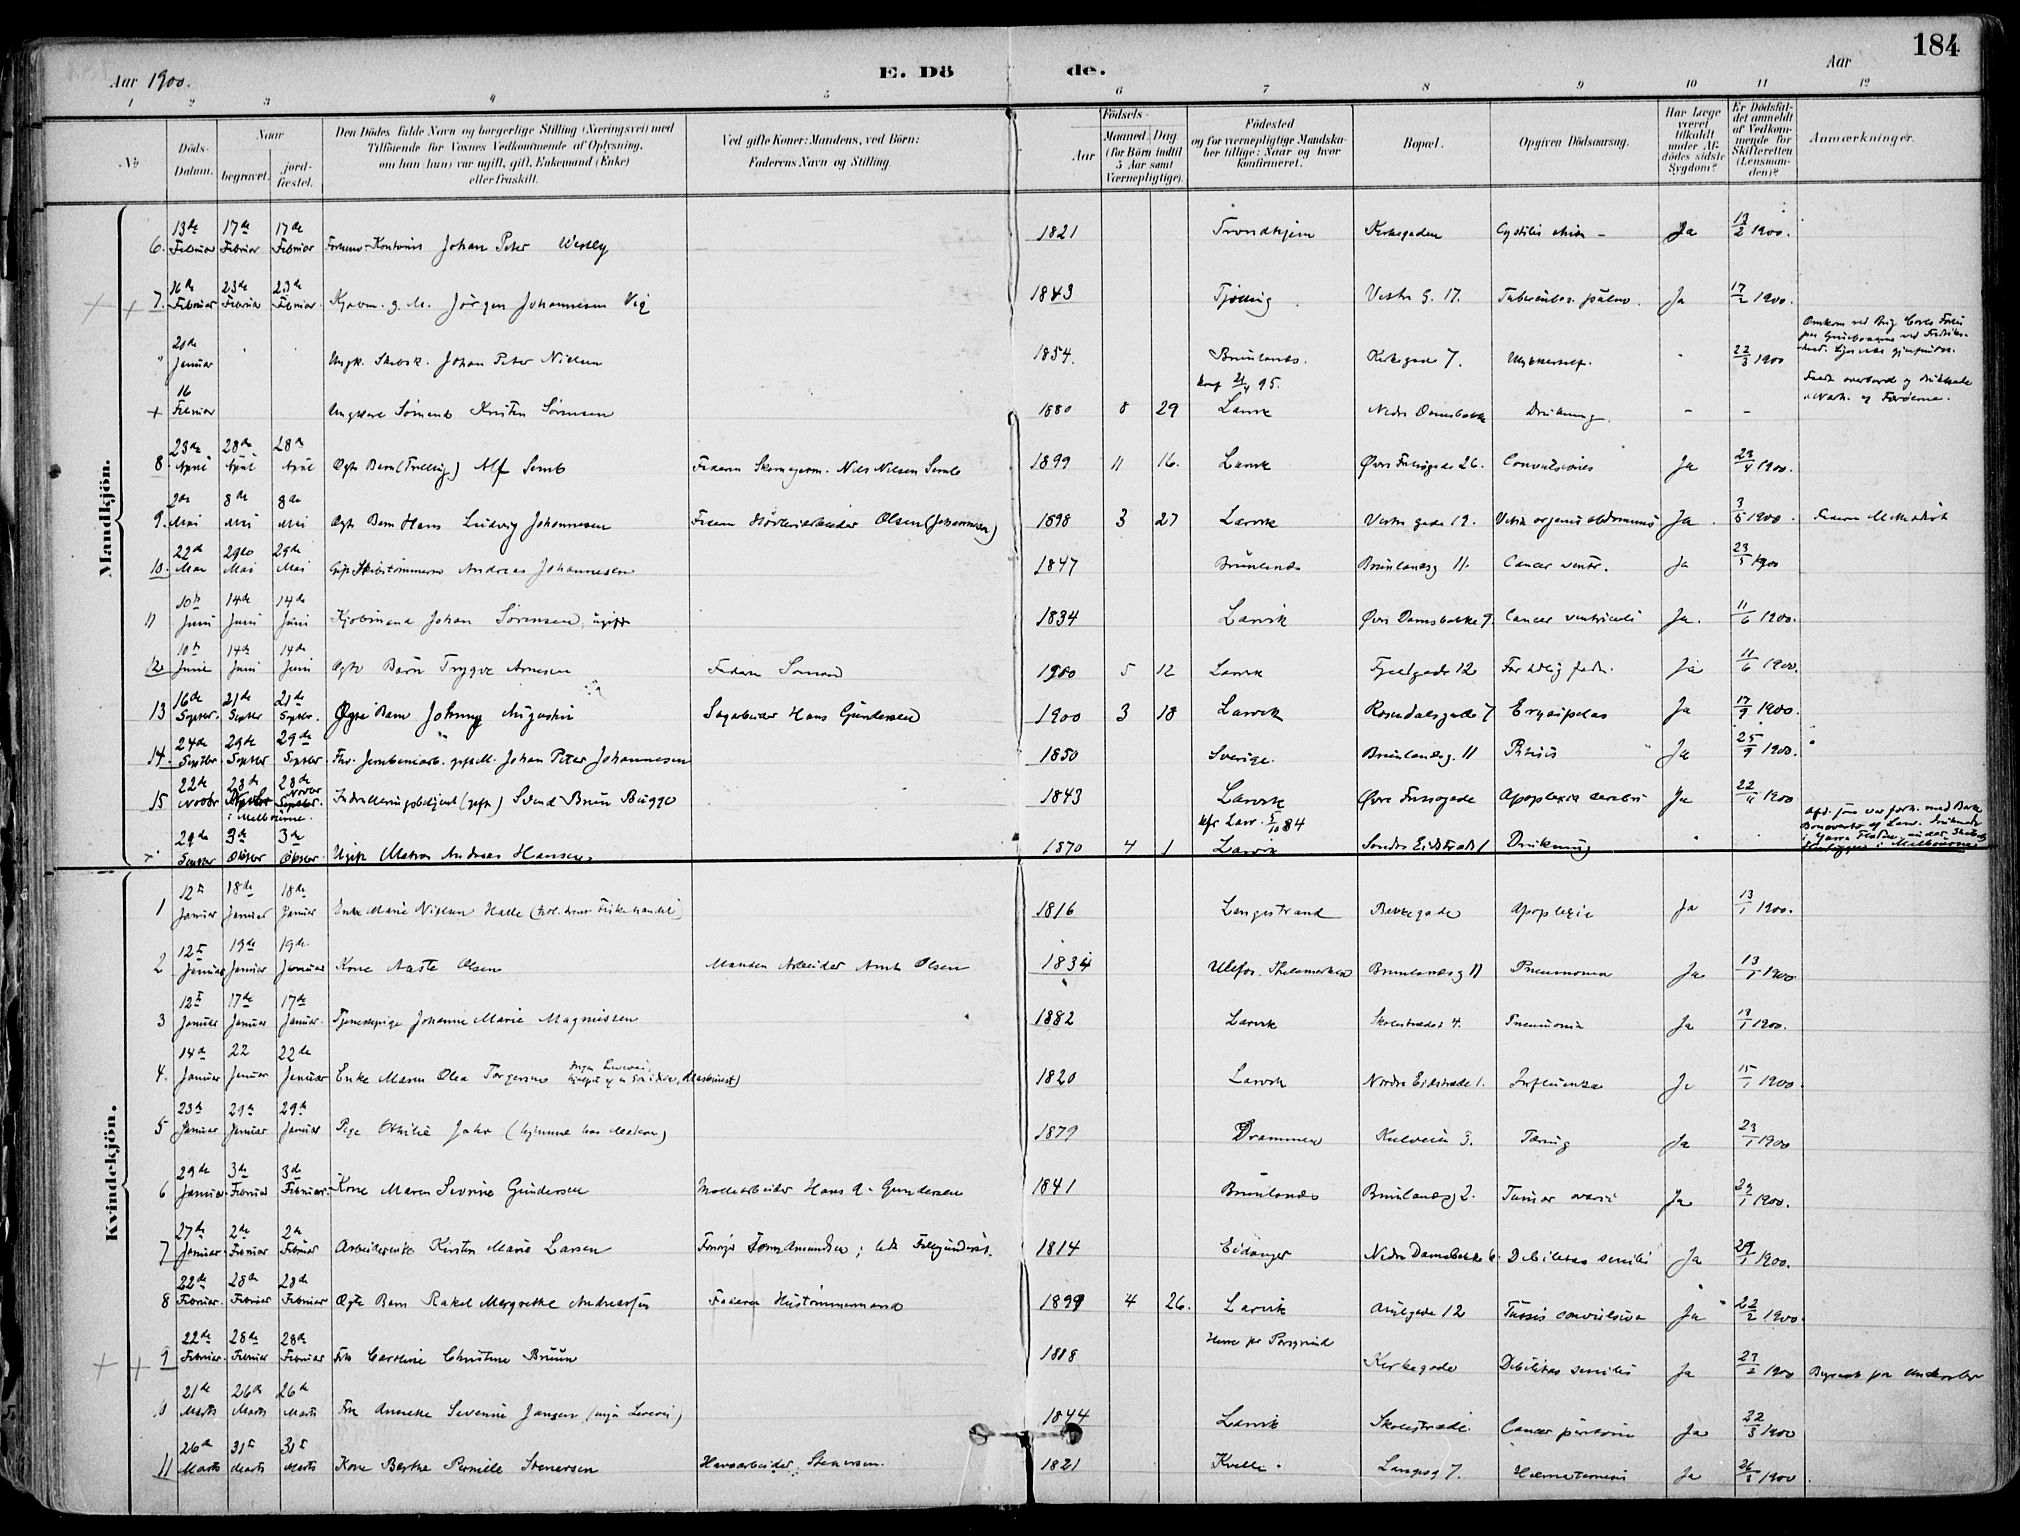 184
Aar 1900.
E. Döde.
Aar
1 2 3 4 5 6 7 8 9 10 11 12
No
Döds-Datum.
Naar
begravet.
jord-fæstet.
Den Dödes fulde Navn og borgerlige Stilling (Næringsvei) med
Tilföiende for Voxnes Vedkommende af Oplysning,
om han (hun) var ugift, gift, Enkemand (Enke)
eller fraskilt.
Ved gifte Koner: Mandens, ved Börn:
Faderens Navn og Stilling.
Födsels-
Aar
Maaned Dag
(for Börn indtil
5 Aar samt
Værnepligtige).
Födested
og for værnepligtige Mandska-
ber tillige: Naar og hvor
konfirmeret.
Bopæl.
Opgiven Dödsaarsag.
Har Læge
været
tilkaldt
under Af-
dödes sidste
Sygdom?
Er Dödsfal-
det anmeldt
af Vedkom-
mende for
Skifteretten
(Lensman-
den)?
Anmærkninger.
Mandkjön.
6. 13de Februar 17de Februar 17de Februar Johan Peter Westby 1821 Trondhjem Kirkegaden Ja 13/2 1900.
7. 16de Februar 23de Februar 23de Februar Kjøbm. g. M. Jörgen Johannesen Vig 1843 Tjölling Vestre G. 17. Tuberculos. pulm. Ja 17/2 1900.
" 20de Januar Ungk. Johan Peter Nielsen 1854. Brunlanæs. Kirkegade 7. 22/3 1900
+ 16 Februar Ungkarl Sømand Kristen Sørensen 1880 8 29 konf 21/4 95. Larvik Nedre Damsbakke Drukning - -
8 23de April 28de April 28de April Ægte Barn (Tvilling) Alf Semb Faderen Skomagerm. Nils Nilsen Semb 1899 11 16. Larvik Øvre Fritzøgade 26. Convulsiones Ja 23/4 1900.
9. 2den Mai 8de Mai 8de Mai Ægte Barn Hans Ludvig Johannesen Faderen Olsen (Johannesen) 1898 3 27 Larvik Vestre gade 19. Ja. 3/5 1900. Faderen Methodist
10. 22de Mai 29de Mai 29de Mai Gift Skibstømmerm Andreas Johannesen 1847 Brunlanæs Brunlanæsg 11. Cancer ventr. Ja 23/5 1900
11 10de Juni 14de Juni 14de Juni Kjøbmand Johan Sørensen, ugift 1834 Larvik Øvre Damsbakke 9. Cancer ventriculi Ja. 11/6 1900.
12 10de Juni 14de Juni 14de Juni Ægte Barn Trygve Arnesen Faderen Sømand 1900 5 12 Larvik Fjeldgade 12 For tidlig født. Ja 11/6 1900.
13 16de Septbr. 21de Septbr 21de Septbr. Ægte Barn Johnny Augustin Sagarbeider Hans Gundersen 1900 3 18 Larvik Rosendalsgade 7 Erysipelas Ja 17/9 1900.
14. 24de Septbr. 29de Septbr 29de Septbr. Fhv. Jernbanearb. gift M. Johan Peter Johannesen 1850 Sverige. Brunlanæsg. 11 Phtisis Ja 25/9 1900.
15 22de Novbr 28de Novbr 28de Novbr Septbr. (gift) Svend Bruun Bugge 1843 Larvik Øvre Fritzøgade Apoplexia cerebri Ja 22/11 1900
i Melbourne.
29de Septbr 3de Oktbr 3de Oktbr Ugift Matros Andreas Hansen 1870 4 1 kfr Larv. 5/10 84 Larvik Søndre Eidstræde 1 Drukning
Kvindekjön.
1 12te Januar 18de Januar 18de Januar Enke Marie Nielsen Halle 1816 Langestrand Bakkegade Apoplexia Ja 13/1 1900.
2 12te Januar 19de Januar 19de Januar Kone Aaste Olsen Manden Arbeider Olsen 1834 Ulefos. Thelemarken Brunlanæsg 11 Pneumonia Ja. 13/1 1900
3 12te Januar 17de Januar 17de Januar. Tjenestepige Johanne Marie Magnussen 1882 Larvik Skolestræde 4. Pneumonia Ja 13/1 1900.
4. 14de Januar 22 Januar 22de Januar Enke Maren Olea Torgersen 1820 Larvik Nordre Eidstræde 1. Influenza Ja 15/1 1900
5 23de Januar 29de Januar 29de Januar Pige Othilie Jahr 1879 Drammen Kulveien 3. Tæring Ja 23/1 1900
6 29de Januar. 3de Februar 3de Februar. Kone Maren Severine Gundersen Hans A. Gundersen 1841 Brunlanæs Brunlanæsg 2. Tumor ovarii Ja 29/1 1900.
7 27de Januar. 2de Februar 2de Februar Arbeiderenke Kirsten Marie Larsen 1814 Eidanger Nedre Damsbakke 6 Debilitas senilis Ja 29/1 1900.
8 22de Februar. 28de Februar 28de Februar Ægte Barn Rakel Margrethe Andreassen Faderen Hustømmermand 1899 4 26. Larvik Amtgade 12 Tussis convulsiva Ja 22/2 1900.
9 22de Februar. 28de Februar 28de Februar Frk Caroline Christine Bruun 1818 Herre pr Porsgrund Kirkegade Debilitas senilis Ja 23/2 1900
10 21de Marts 26de Marts 26de Marts Frk Annette Severine Jansen 1844 Larvik Skolestræde. Cancer Ja 22/3 1900
11 26de Marts 31te Marts 31te Marts Kone Berthe Pernille Stenersen Havnearbeider, Stenersen. 1821 Kvelle. Langesg 7. Hæmatemesis Ja 26/3 1900.